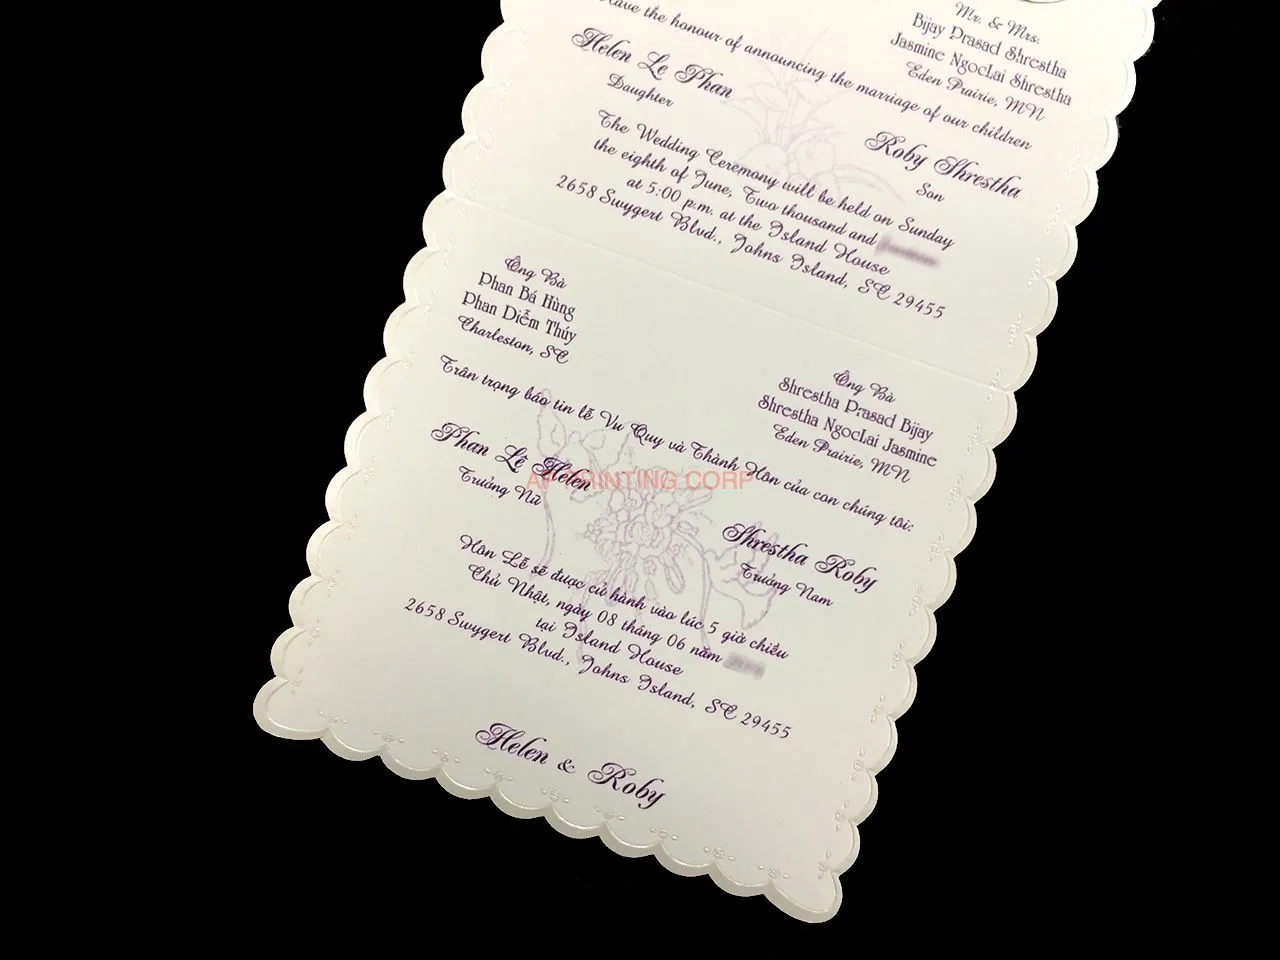 Mr. & Mrs.
Bijay Prasad Shrestha
Jasmine NgocLai Shrestha
Eden Prairie, MN
Have the honour of announcing the marriage of our children
Helen Le Phan
Daughter
Roby Shrestha
Son
The Wedding Ceremony will be held on Sunday
the eighth of June, Two thousand and
at 5:00 p.m. at the Island House
2658 Swygert Blvd., Johns Island, SC 29455
Ông Bà
Phan Bá Hùng
Phan Diễm Thúy
Charleston, SC
Ông Bà
Shrestha Prasad Bijay
Shrestha NgocLai Jasmine
Eden Prairie, MN
Trân trọng báo tin lễ Vu Quy và Thành Hôn của con chúng tôi:
Phan Lê Helen
Trưởng Nữ
Shrestha Roby
Trưởng Nam
Hôn Lễ sẽ được cử hành vào lúc 5 giờ chiều
Chủ Nhật, ngày 08 tháng 06 năm
tại Island House
2658 Swygert Blvd., Johns Island, SC 29455
Helen & Roby
PRINTING CORP